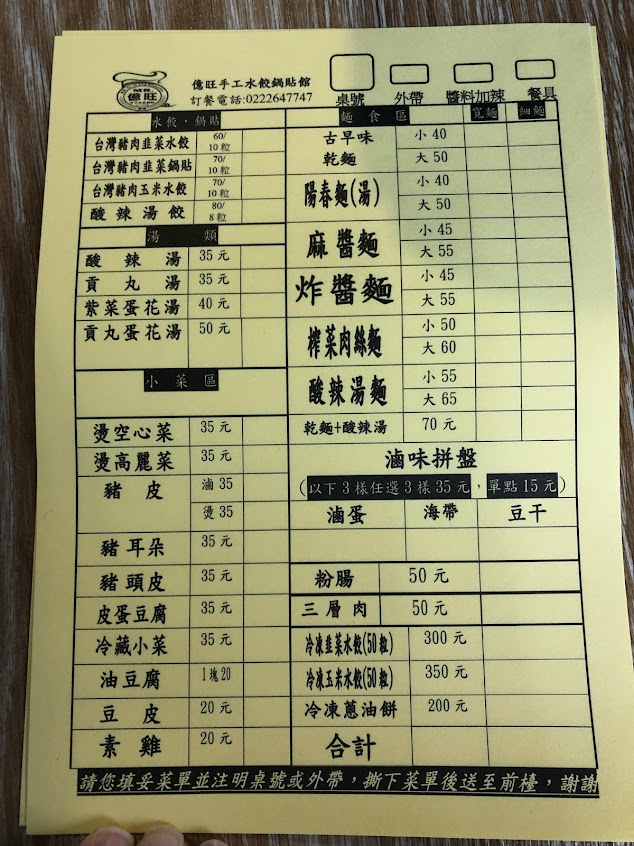 億旺
億旺手工水餃鍋貼館
訂餐電話:0222647747
桌號 外帶 醬料加辣 餐具
水餃、鍋貼
台灣豬肉韭菜水餃 60/10粒
台灣豬肉韭菜鍋貼 70/10粒
台灣豬肉玉米水餃 70/10粒
酸辣湯餃 80/8粒
湯類
酸辣湯 35元
貢丸湯 35元
紫菜蛋花湯 40元
貢丸蛋花湯 50元
小菜區
燙空心菜 35元
燙高麗菜 35元
豬皮 滷35
燙35
豬耳朵 35元
豬頭皮 35元
皮蛋豆腐 35元
冷藏小菜 35元
油豆腐 1塊20
豆皮 20元
素雞 20元
麵食區 寬麵 細麵
古早味 小40
乾麵 大50
陽春麵(湯) 小40
大50
麻醬麵 小45
大55
炸醬麵 小45
大55
榨菜肉絲麵 小50
大60
酸辣湯麵 小55
大65
乾麵+酸辣湯 70元
滷味拼盤
(以下3樣任選3樣35元,單點15元)
滷蛋 海帶 豆干
粉腸 50元
三層肉 50元
冷凍韭菜水餃(50粒) 300元
冷凍玉米水餃(50粒) 350元
冷凍蔥油餅 200元
合計
請您填妥菜單並注明桌號或外帶,撕下菜單後送至前檯,謝謝